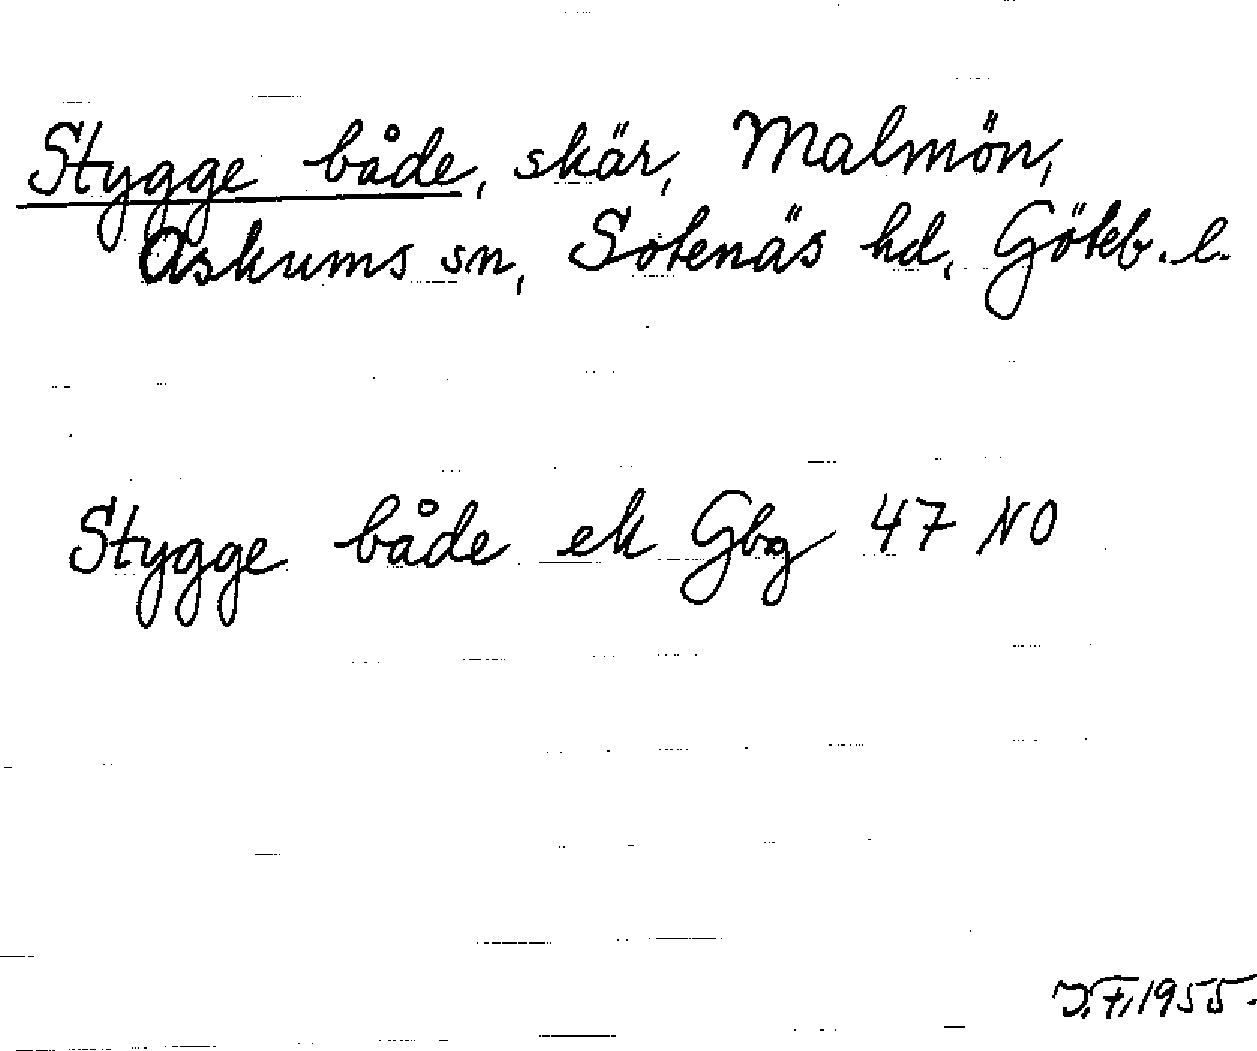 Stygge både, skär, Malmön,
Askums sn, Sotenäs hd, Göteb. l.
Stygge både ek Gbg 47 NO
J.F. 1955.